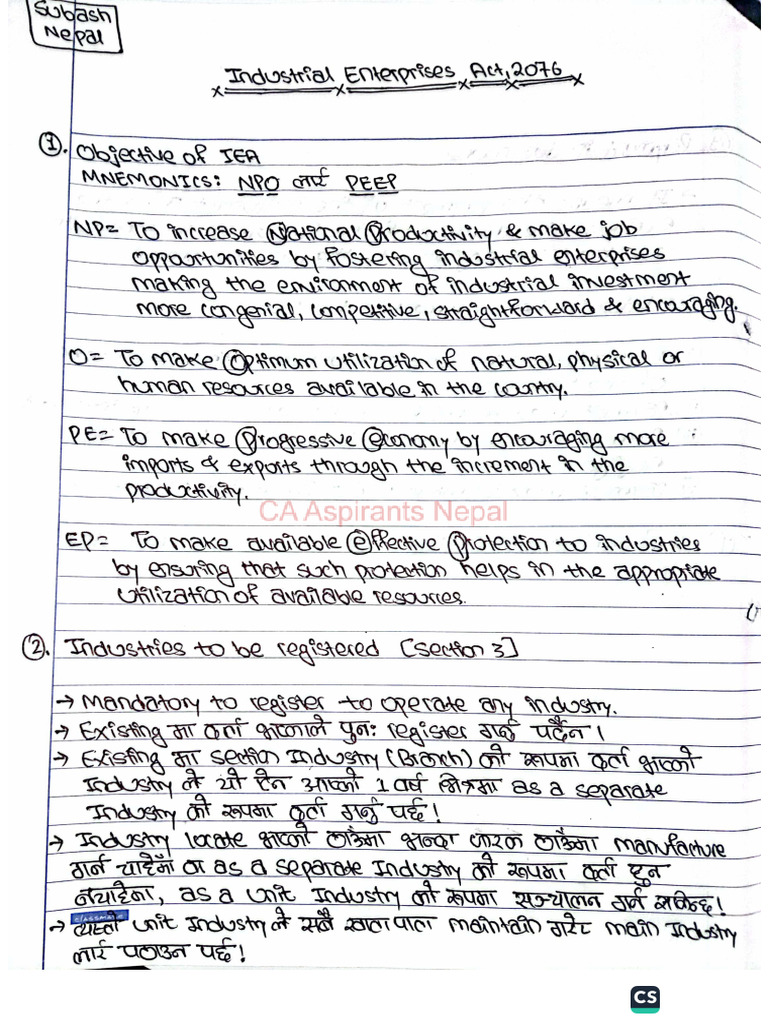 Subash
Nepal
Industrial Enterprises Act, 2076
①. Objective of IEA
MNEMONICS: NPO लाई PEEP
NP= To increase National Productivity & make job
opportunities by fostering industrial enterprises
making the environment of industrial investment
more congenial, competitive, straightforward & encouraging.
O= To make Optimum utilization of natural, physical or
human resources available in the country.
PE= To make Progressive economy by encouraging more
imports & exports through the increment in the
productivity.
CA Aspirants Nepal
EP= To make available effective Protection to industries
by ensuring that such protection helps in the appropriate
utilization of available resources.
②. Industries to be registered [Section 3]
→ Mandatory to register to operate any industry.
→ Existing मा दर्ता भएकाले पुनः register गर्नु पर्दैन ।
→ Existing मा section Industry (Branch) को रूपमा दर्ता भएको
Industry ले यो ऐन आएको 1 वर्ष भित्रमा as a separate
Industry को रूपमा दर्ता गर्नु पर्छ !
→ Industry locate भएको ठाउँमा भन्दा फरक ठाउँमा manufacture
गर्न चाहेमा or as a separate Industry को रूपमा दर्ता हुन
नचाहेमा, as a unit Industry को रूपमा सञ्चालन गर्न सकिन्छ !
classmate
→ त्यस्तो unit Industry ले सबै खातापाता maintain गरेर main Industry
लाई पठाउन पर्छ !
CS